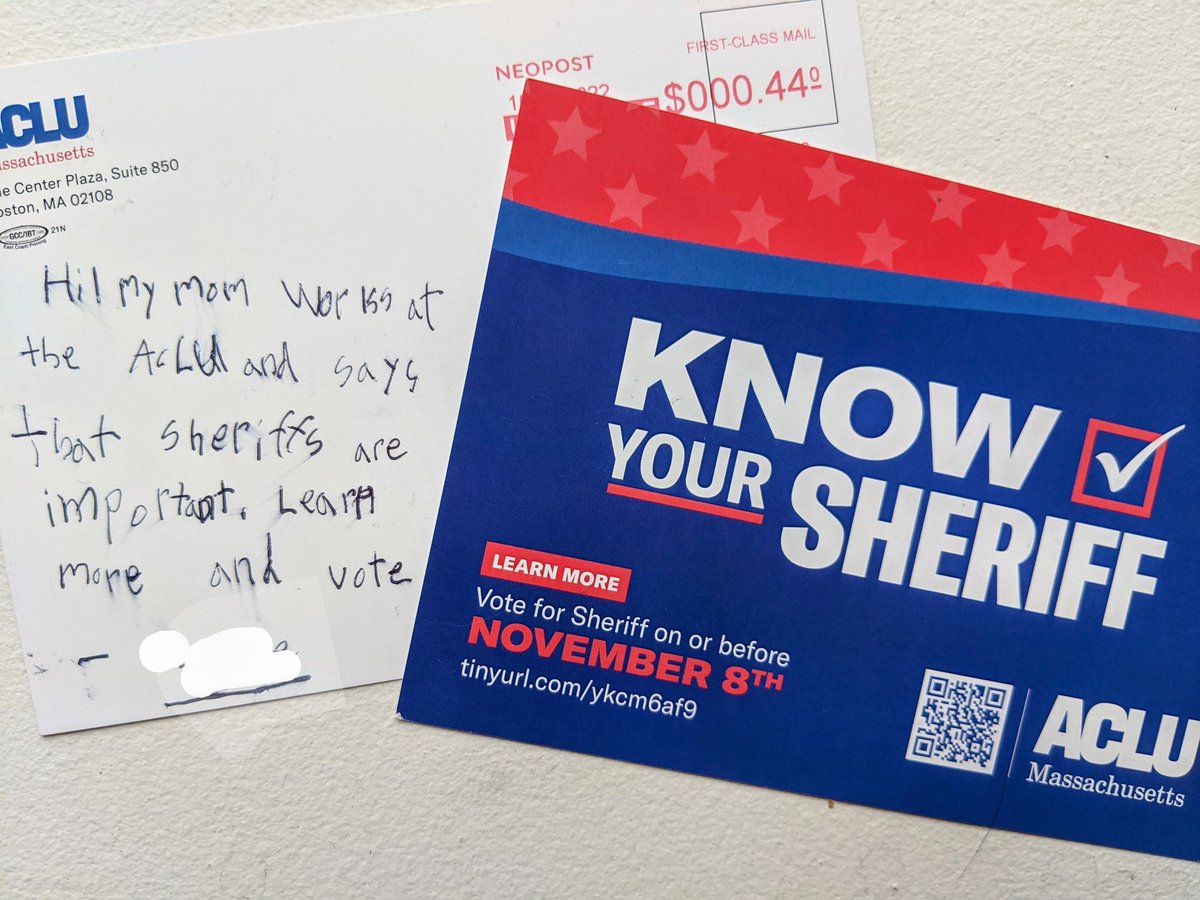 ACLU
Massachusetts
Center Plaza, Suite 850
Boston, MA 02108
GCC/IBT 21N
East Coast Printing
NEOPOST
FIRST-CLASS MAIL
$000.44⁰
Hi! My mom works at
the ACLU and says
that sheriffs are
important. Learn
more and vote
-
KNOW
YOUR SHERIFF
LEARN MORE
Vote for Sheriff on or before
NOVEMBER 8TH
tinyurl.com/ykcm6af9
ACLU
Massachusetts